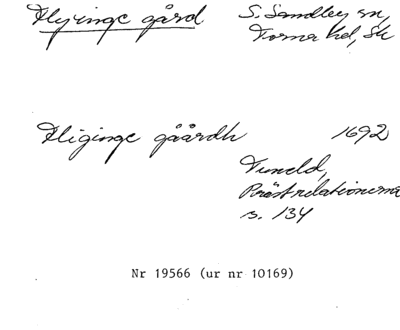 Flyinge gård S. Sandby sn,
Torna hd, Sk
Fliginge gåårdh 1692
Tuneld,
Prästrelationerna
s. 134
Nr 19566 (ur nr 10169)